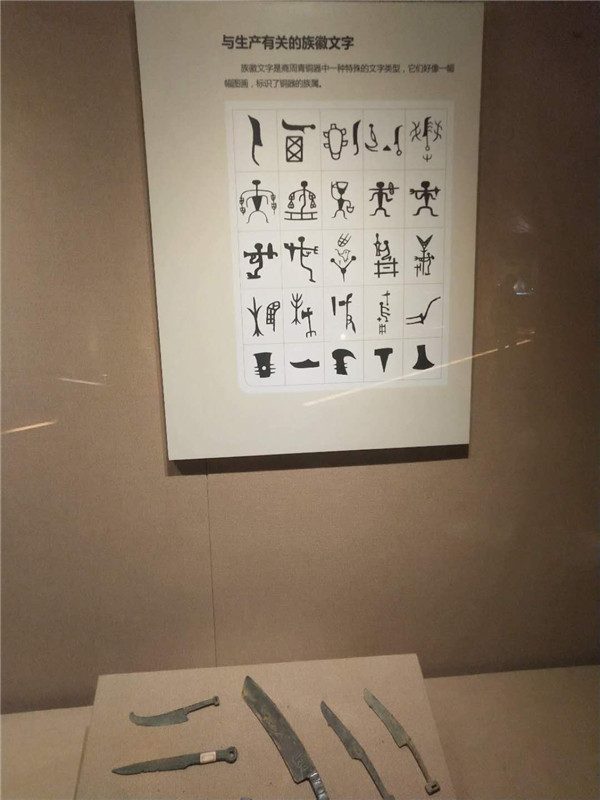 与生产有关的族徽文字
族徽文字是商周青铜器中一种特殊的文字类型，它们好像一幅
幅图画，标识了铜器的族属。